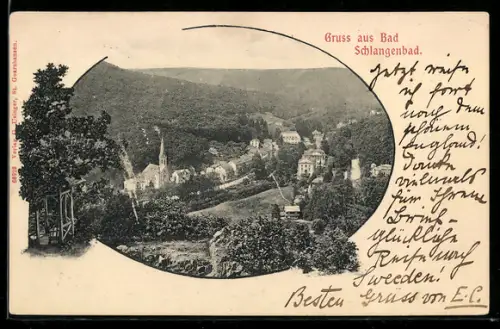 Gruss aus Bad
Schlangenbad.
Jetzt reise
ich fort
nach dem
schönen
England!
Danke
vielmals
für Ihren
Brief-
glückliche
Reise nach
Sweden!
Besten Gruss von E.C.